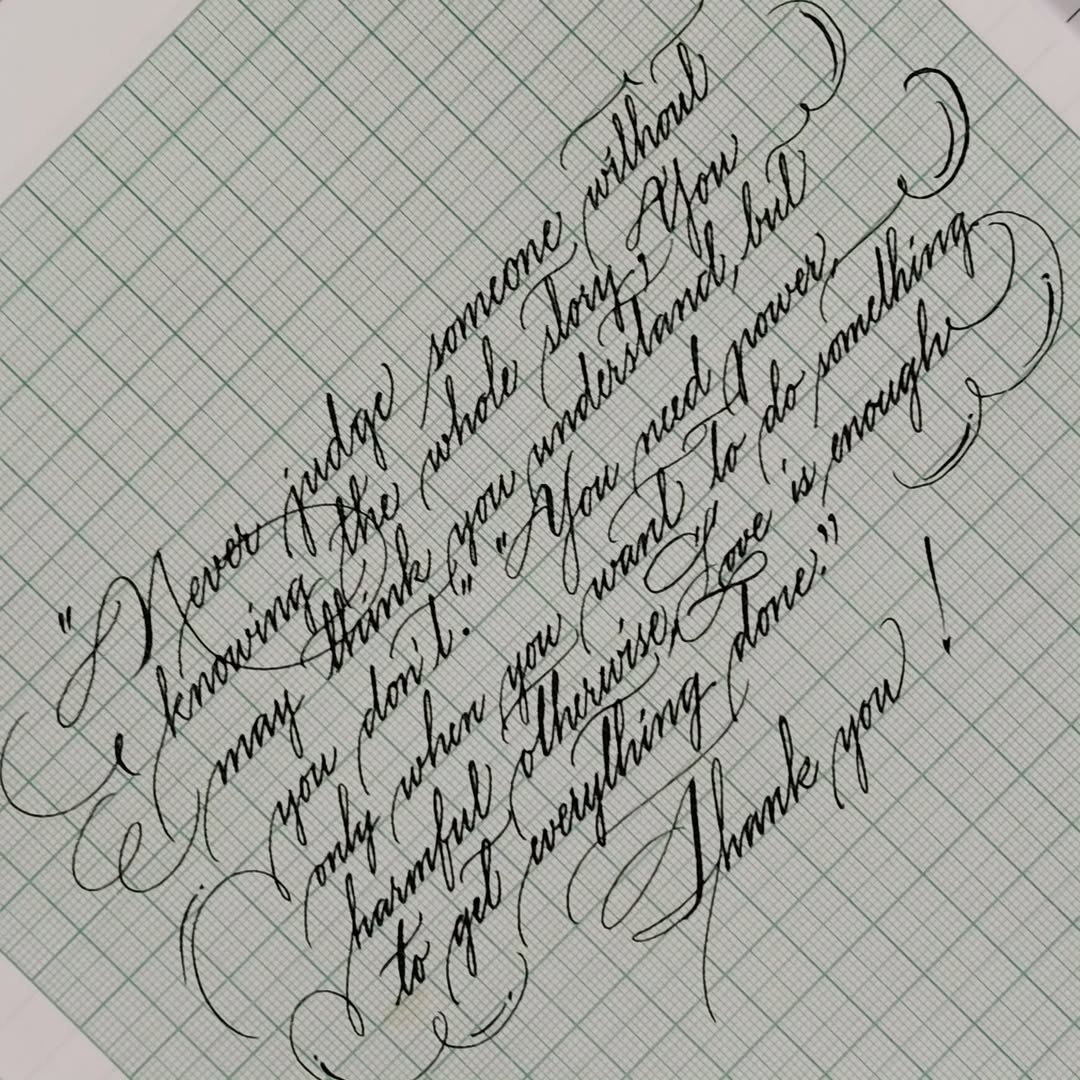 "Never judge someone without
knowing the whole story. You
may think you understand, but
you don't." "You need power,
only when you want to do something
harmful otherwise, Love is enough
to get everything done."
Thank you!